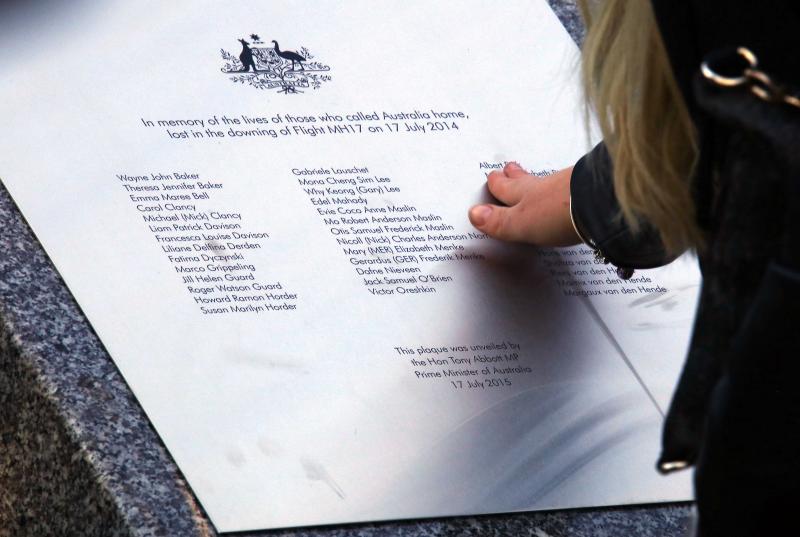 In memory of the lives of those who called Australia home,
lost in the downing of Flight MH17 on 17 July 2014
Wayne John Baker
Theresa Jennifer Baker
Emma Maree Bell
Carol Clancy
Michael (Mick) Clancy
Liam Patrick Davison
Francesca Louise Davison
Liliane Delfina Derden
Fatima Dyczynski
Marco Grippeling
Jill Helen Guard
Roger Watson Guard
Howard Ramon Horder
Susan Marilyn Horder
Gabriele Lauschet
Mona Cheng Sim Lee
Why Keong (Gary) Lee
Edel Mahady
Evie Coco Anne Maslin
Mo Robert Anderson Maslin
Otis Samuel Frederick Maslin
Nicoll (Nick) Charles Anderson
Mary (MER) Elizabeth Menke
Gerardus (GER) Frederik Menke
Dafne Nieveen
Jack Samuel O'Brien
Victor Oreshkin
Albert
van den
van den
van den Hende
Margaux van den Hende
This plaque was unveiled by
the Hon Tony Abbott MP
Prime Minister of Australia
17 July 2015